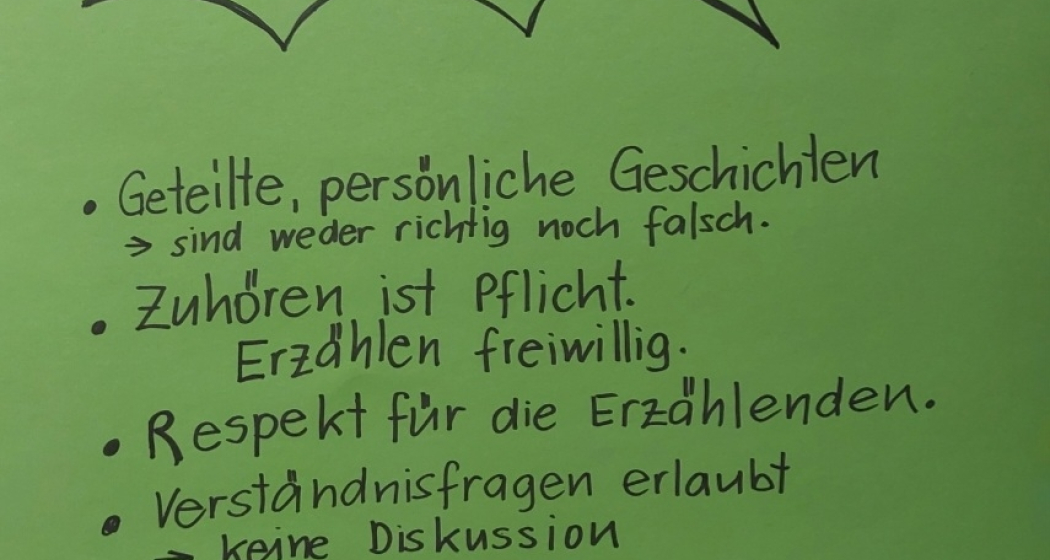 • Geteilte, persönliche Geschichten
→ sind weder richtig noch falsch.
• Zuhören ist Pflicht.
Erzählen freiwillig.
• Respekt für die Erzählenden.
• Verständnisfragen erlaubt
→ keine Diskussion